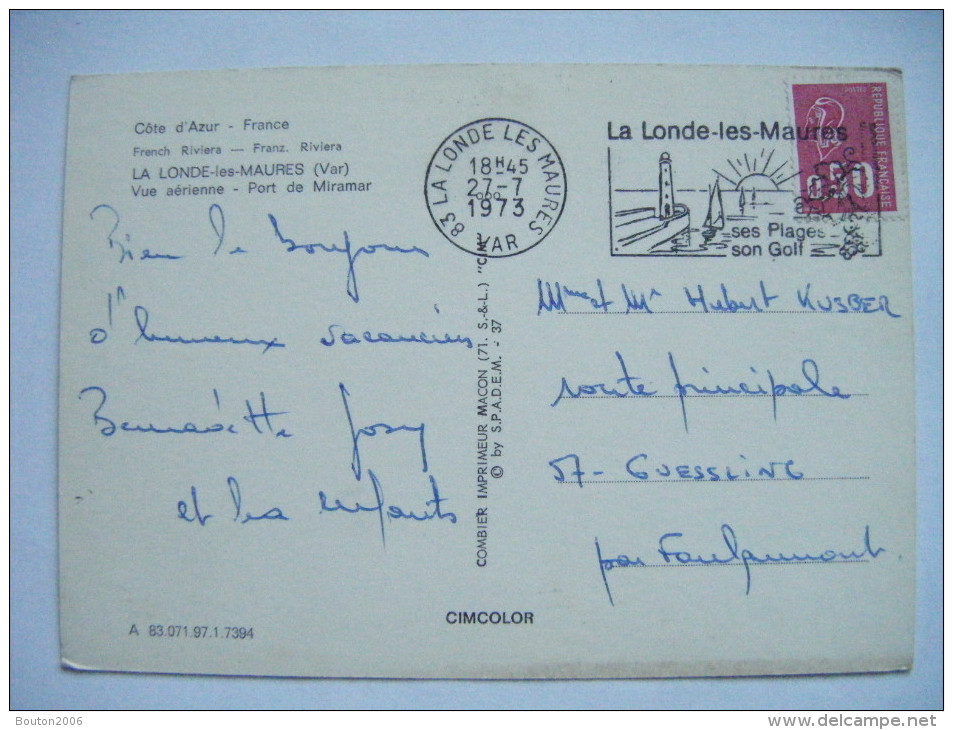 Côte d'Azur - France
French Riviera — Franz. Riviera
LA LONDE-les-MAURES (Var)
Vue aérienne - Port de Miramar
83 LA LONDE LES MAURES
18H45
27-7
1973
VAR
La Londe-les-Maures
ses Plages
son Golf
POSTES
REPUBLIQUE FRANÇAISE
0,50
Bien le bonjour
d'heureux vacanciers
Bernadette Josy
et les enfants
COMBIER IMPRIMEUR MACON (71. S.-&-L.) "CIM"
© by S.P.A.D.E.M. - 37
Mme et Mr Hubert KUSBER
route principale
57 - GUESSLING
par Faulquemont
CIMCOLOR
A 83.071.97.1.7394
Bouton2006
delcampe.net